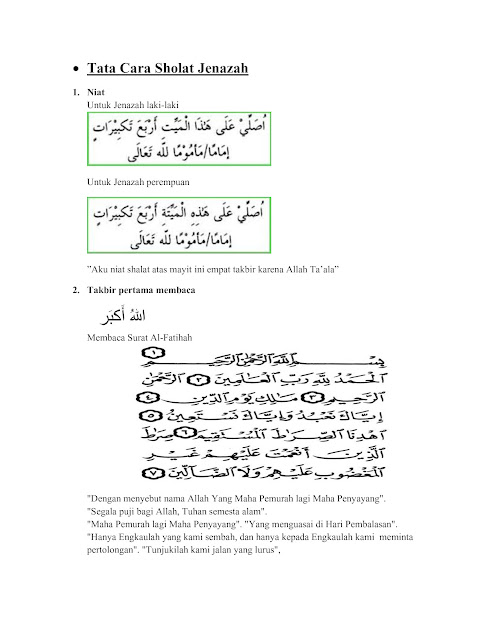 • Tata Cara Sholat Jenazah
1. Niat
Untuk Jenazah laki-laki
اُصَلِّيْ عَلَى هَذَا الْمَيِّتِ أَرْبَعَ تَكْبِيْرَاتٍ
إِمَامًا/مَأْمُوْمًا لِلَّه تَعَالَى
Untuk Jenazah perempuan
اُصَلِّيْ عَلَى هَذِهِ الْمَيِّتَةِ أَرْبَعَ تَكْبِيْرَاتٍ
إِمَامًا/مَأْمُوْمًا لِلَّه تَعَالَى
"Aku niat shalat atas mayit ini empat takbir karena Allah Ta'ala"
2. Takbir pertama membaca
اللهُ أَكْبَر
Membaca Surat Al-Fatihah
بِسْمِ اللَّهِ الرَّحْمَٰنِ الرَّحِيمِ ١
الْحَمْدُ لِلَّهِ رَبِّ الْعَالَمِينَ ٢ الرَّحْمَٰنِ
الرَّحِيمِ ٣ مَالِكِ يَوْمِ الدِّينِ ٤
إِيَّاكَ نَعْبُدُ وَإِيَّاكَ نَسْتَعِينُ ٥
اهْدِنَا الصِّرَاطَ الْمُسْتَقِيمَ ٦ صِرَاطَ
الَّذِينَ أَنْعَمْتَ عَلَيْهِمْ غَيْرِ
الْمَغْضُوبِ عَلَيْهِمْ وَلَا الضَّالِّينَ ٧
"Dengan menyebut nama Allah Yang Maha Pemurah lagi Maha Penyayang".
"Segala puji bagi Allah, Tuhan semesta alam".
"Maha Pemurah lagi Maha Penyayang". "Yang menguasai di Hari Pembalasan".
"Hanya Engkaulah yang kami sembah, dan hanya kepada Engkaulah kami meminta
pertolongan". "Tunjukilah kami jalan yang lurus",